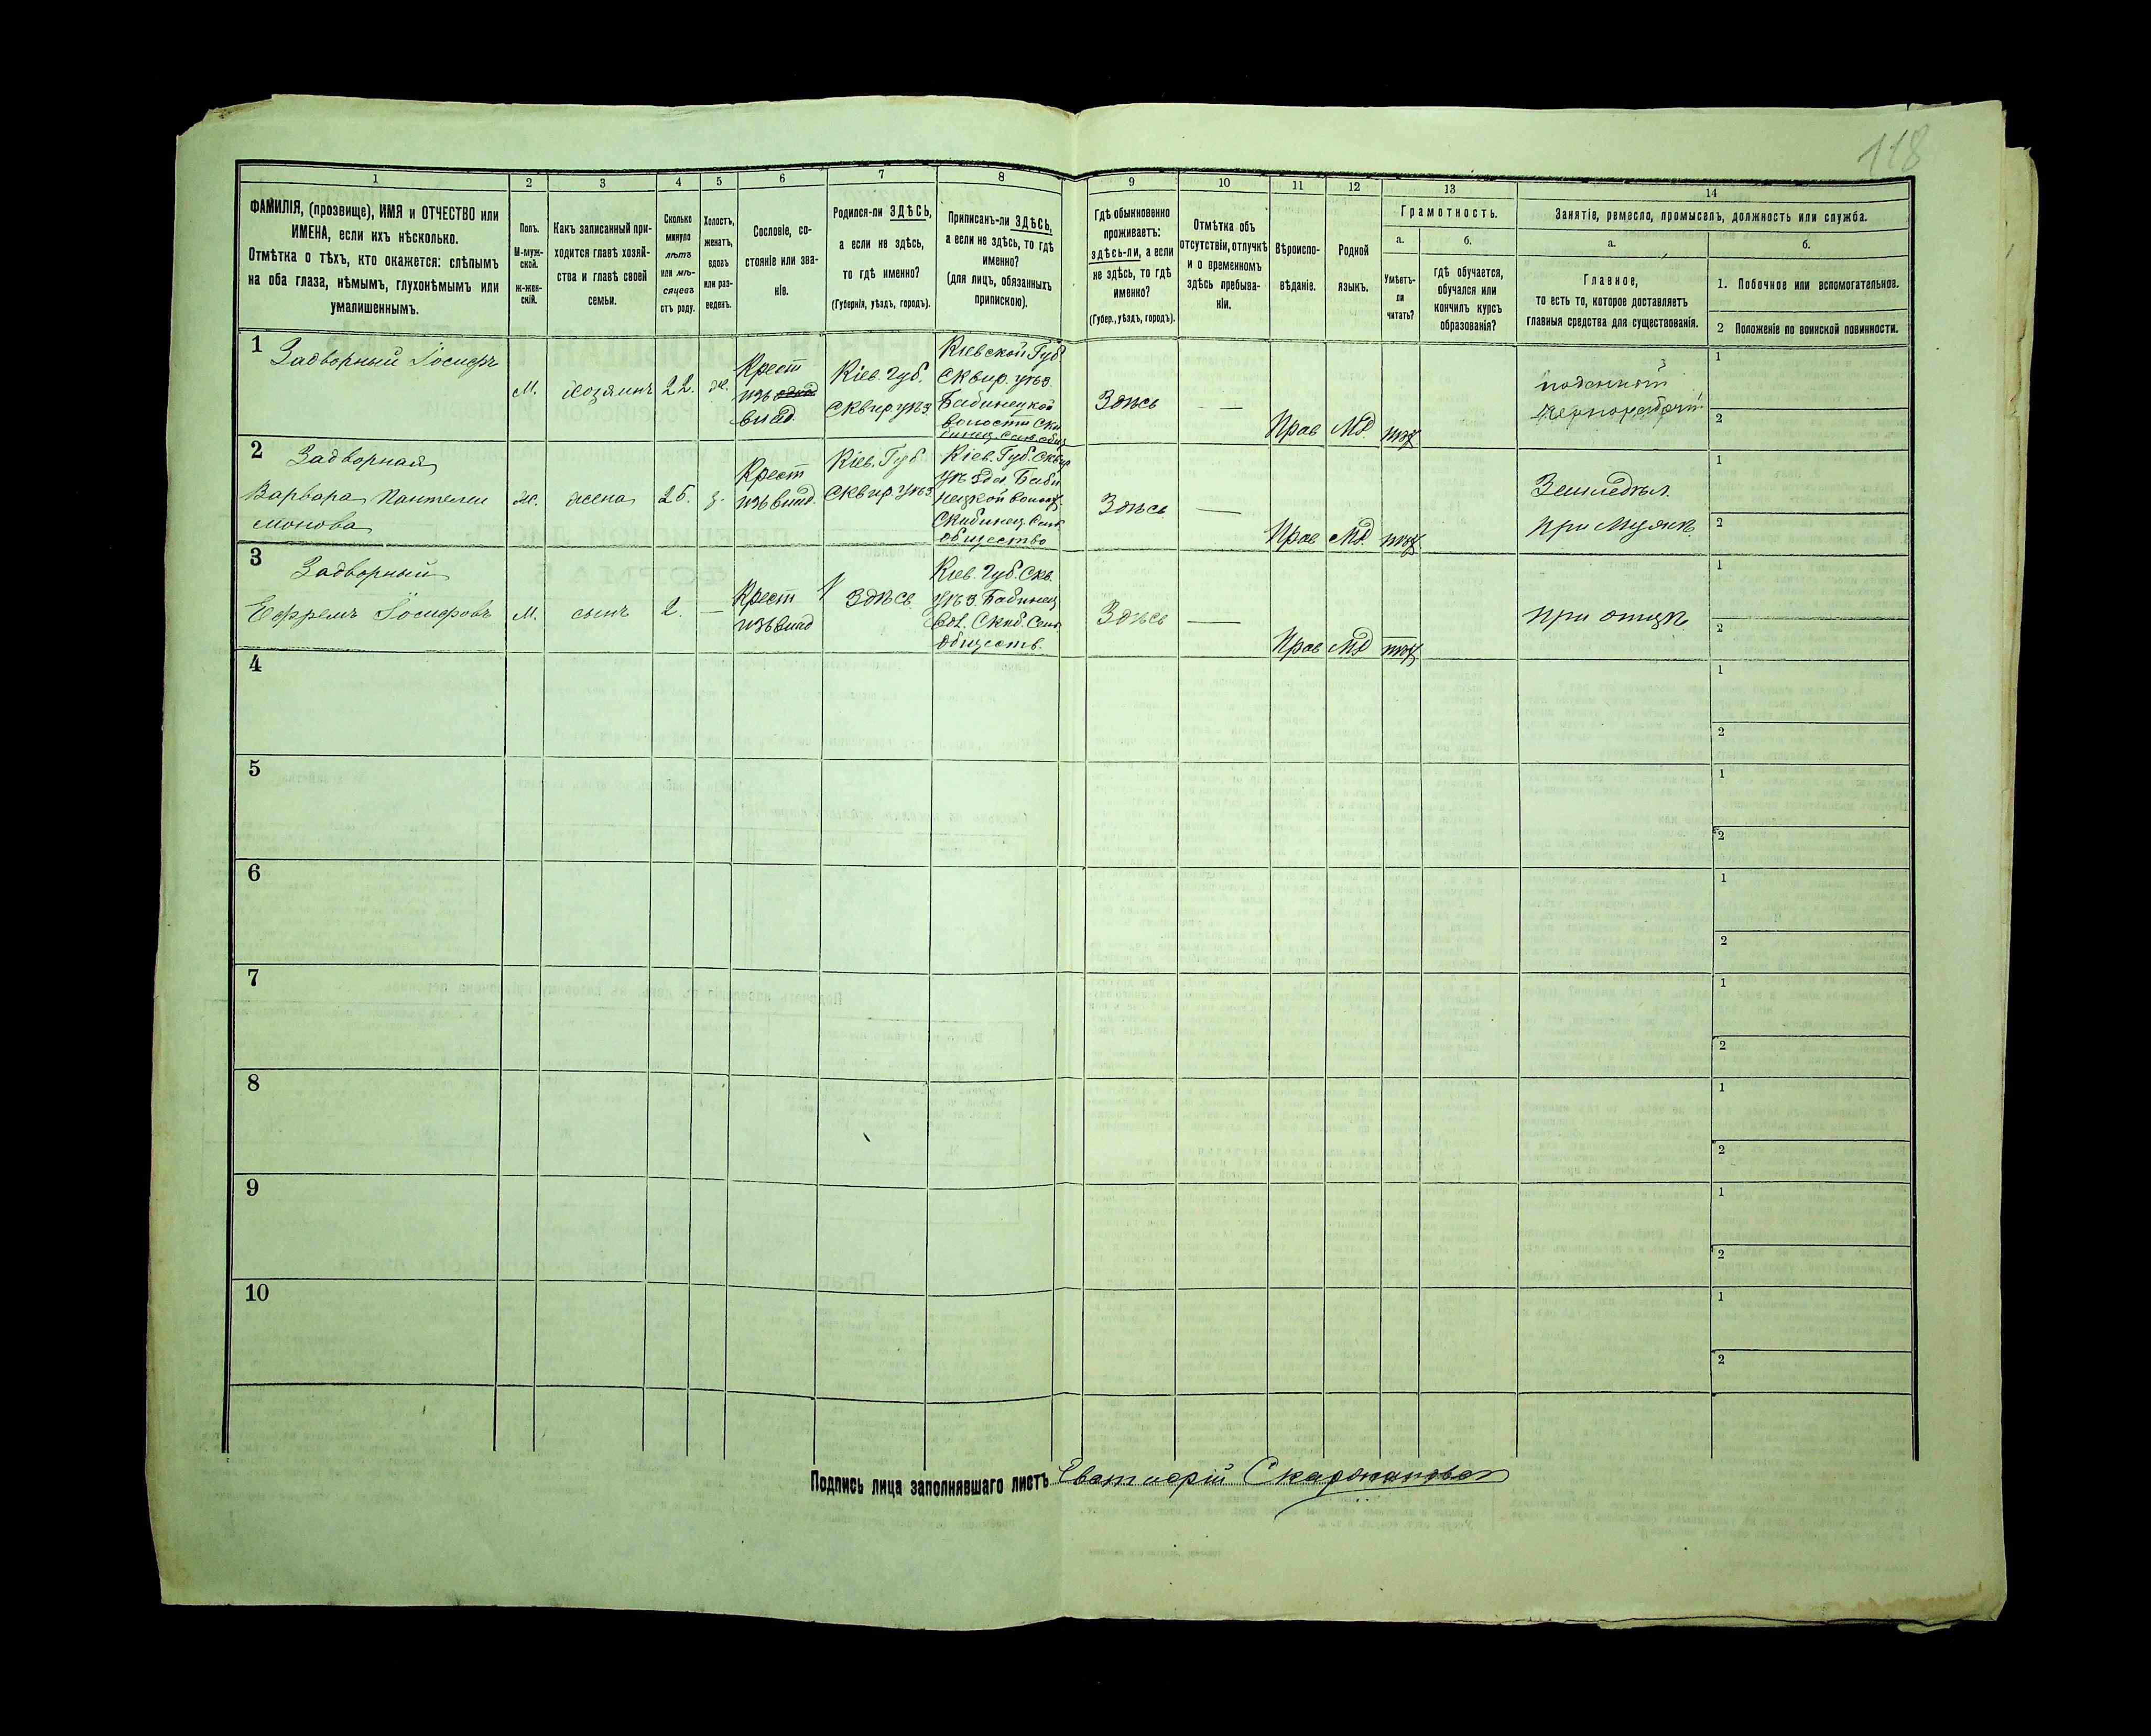 118
1
2
3
4
5
6
7
8
9
10
11
12
13
14
ФАМИЛІЯ, (прозвище), ИМЯ и ОТЧЕСТВО или
ИМЕНА, если ихъ нѣсколько.
Отмѣтка о тѣхъ, кто окажется: слѣпымъ
на оба глаза, нѣмымъ, глухонѣмымъ или
умалишеннымъ.
Полъ.
М-муж-
ской.
ж-жен-
скій.
Какъ записанный при-
ходится главѣ хозяй-
ства и главѣ своей
семьи.
Сколько
минуло
лѣтъ
или мѣ-
сяцевъ
отъ роду.
Холостъ,
женатъ,
вдовъ
или раз-
веденъ.
Сословіе, со-
стояніе или зва-
ніе.
Родился-ли ЗДѢСЬ,
а если не здѣсь,
то гдѣ именно?
(Губернія, уѣздъ, городъ).
Приписанъ-ли ЗДѢСЬ,
а если не здѣсь, то гдѣ
именно?
(для лицъ, обязанныхъ
припискою).
Гдѣ обыкновенно
проживаетъ:
здѣсь-ли, а если
не здѣсь, то гдѣ
именно?
(Губер., уѣздъ, городъ).
Отмѣтка объ
отсутствіи, отлучкѣ
и о временномъ
здѣсь пребыва-
ніи.
Вѣроиспо-
вѣданіе.
Родной
языкъ.
Грамотность.
а.
Умѣетъ-
ли
читать?
б.
гдѣ обучается,
обучался или
кончилъ курсъ
образованія?
Занятіе, ремесло, промыселъ, должность или служба.
а.
Главное,
то есть то, которое доставляетъ
главныя средства для существованія.
б.
1. Побочное или вспомогательное.
2 Положеніе по воинской повинности.
1
Задворный Іосифъ
М.
хозяинъ
22.
ж.
Крест
изъ
влад.
Кіев. Губ.
Сквир. уѣз
Кіевской Губ
Сквир. уѣз.
Бабинецкой
волости Ски
бинец. сель. общ
Здѣсь
—
Прав
МР
нѣт
поденный
чернорабочій
1
2
2
Задворная
Варвара Пантелеи
монова
ж.
жена
25.
з.
Крест
изъ влад.
Кіев. Губ
Сквир. уѣз
Кіев. Губ. Сквир
уѣзда Баби
нецкой волост.
Скибинец. Сель
общество
Здѣсь
—
Прав
МР.
нѣт
Земледѣл.
при Мужѣ.
1
2
3
Задворный
Ефремъ Іосифовъ
М.
сынъ
2.
—
Крест
изъ влад
Здѣсь
Кіев. Губ. Скв.
уѣз. Бабинец
вол. Скиб. Сель
обществ.
Здѣсь
—
Прав
МР
нѣт
при отцѣ
1
2
4
1
2
5
1
2
6
1
2
7
1
2
8
1
2
9
1
2
10
1
2
Подпись лица заполнявшаго листъ